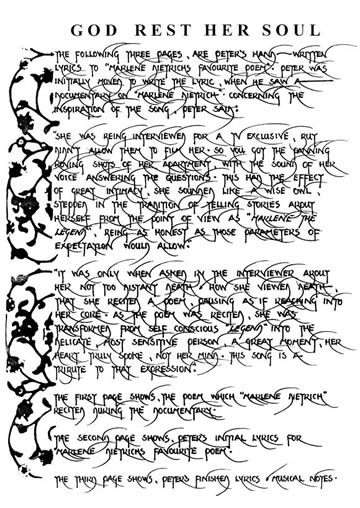 GOD REST HER SOUL
THE FOLLOWING THREE PAGES, ARE PETER'S HAND-WRITTEN
LYRICS TO "MARLENE DIETRICHS FAVOURITE POEM". PETER WAS
INITIALLY MOVED TO WRITE THE LYRIC, WHEN HE SAW A
DOCUMENTARY ON "MARLENE DIETRICH". CONCERNING THE
INSPIRATION OF THE SONG, PETER SAID:
"SHE WAS BEING INTERVIEWED FOR A TV EXCLUSIVE, BUT
DIDN'T ALLOW THEM TO FILM HER. SO YOU GOT THE PANNING
ROVING SHOTS OF HER APARTMENT, WITH THE SOUND OF HER
VOICE ANSWERING THE QUESTIONS. THIS HAD THE EFFECT
OF GREAT INTIMACY, SHE SOUNDED LIKE A WISE OWL,
STEEPED IN THE TRADITION OF TELLING STORIES ABOUT
HERSELF FROM THE POINT OF VIEW AS "MARLENE THE
LEGEND", BEING AS HONEST AS THOSE PARAMETERS OF
EXPECTATION WOULD ALLOW."
"IT WAS ONLY WHEN ASKED BY THE INTERVIEWER ABOUT
HER NOT TOO DISTANT DEATH & HOW SHE VIEWED DEATH,
THAT SHE RECITED A POEM, PAUSING AS IF REACHING INTO
HER CORE. AS THE POEM WAS RECITED, SHE WAS
TRANSFORMED FROM SELF CONSCIOUS "LEGEND" INTO THE
DELICATE, MOST SENSITIVE PERSON, A GREAT MOMENT, HER
HEART TRULY SPOKE, NOT HER MIND. THIS SONG IS A
TRIBUTE TO THAT EXPRESSION."
THE FIRST PAGE SHOWS, THE POEM WHICH "MARLENE DIETRICH"
RECITED DURING THE DOCUMENTARY.
THE SECOND PAGE SHOWS, PETER'S INITIAL LYRICS FOR
"MARLENE DIETRICHS FAVOURITE POEM".
THE THIRD PAGE SHOWS, PETER'S FINISHED LYRICS & MUSICAL NOTES.